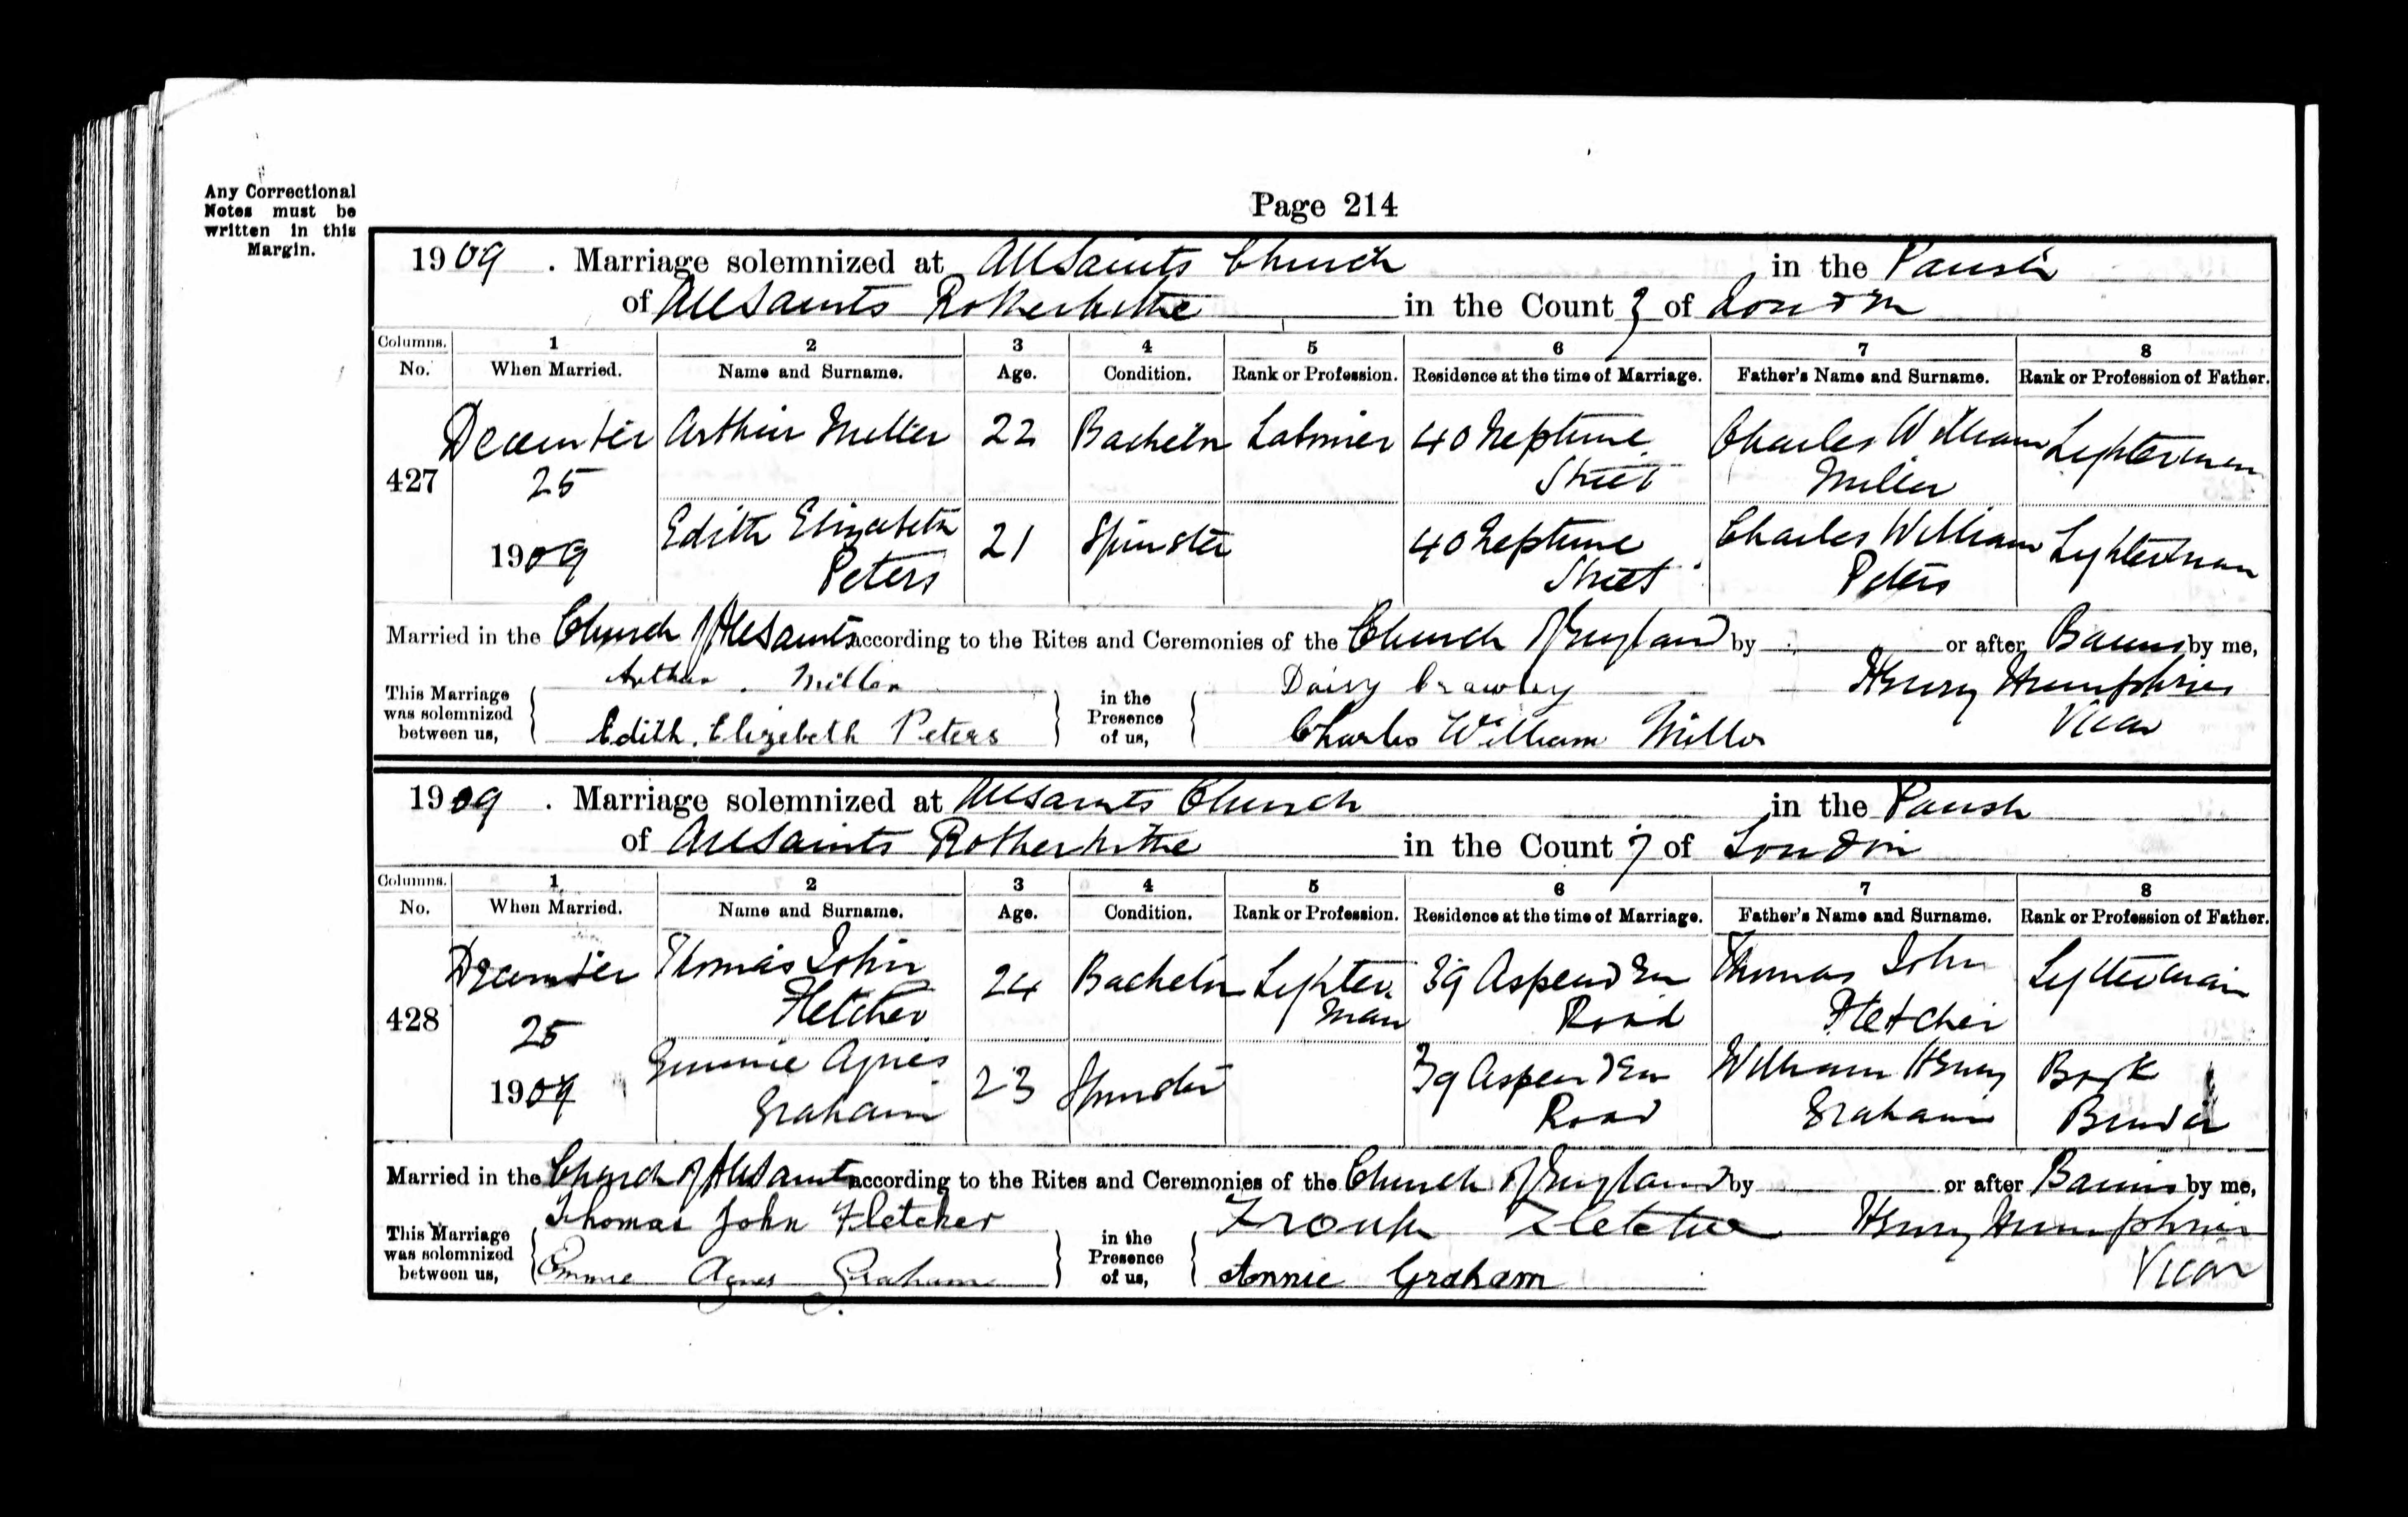 Any Correctional
Notes must be
written in this
Margin.
Page 214
1909. Marriage solemnized at All Saints Church in the Parish
of All Saints Rotherhithe in the County of London
Columns. 1 2 3 4 5 6 7 8
No. When Married. Name and Surname. Age. Condition. Rank or Profession. Residence at the time of Marriage. Father's Name and Surname. Rank or Profession of Father.
December Arthur Miller 22 Bachelor Labourer 40 Neptune Charles William Lighterman
427 25 Street Miller
1909 Edith Elizabeth 21 Spinster 40 Neptune Charles William Lighterman
Peters Street Peters
Married in the Church of All Saints according to the Rites and Ceremonies of the Church of England by or after Banns by me,
This Marriage was solemnized between us, Arthur Miller in the Presence of us, Daisy Crawley Henry Humphries
Edith Elizabeth Peters Charles William Miller Vicar
1909. Marriage solemnized at All Saints Church in the Parish
of All Saints Rotherhithe in the County of London
Columns. 1 2 3 4 5 6 7 8
No. When Married. Name and Surname. Age. Condition. Rank or Profession. Residence at the time of Marriage. Father's Name and Surname. Rank or Profession of Father.
December Thomas John 24 Bachelor Lighter 39 Aspenden Thomas John Lighterman
428 25 Fletcher man Road Fletcher
1909 Emmie Agnes 23 Spinster 39 Aspenden William Henry Book
Graham Road Graham Binder
Married in the Church of All Saints according to the Rites and Ceremonies of the Church of England by or after Banns by me,
This Marriage was solemnized between us, Thomas John Fletcher in the Presence of us, Frank Fletcher Henry Humphries
Emmie Agnes Graham Annie Graham Vicar